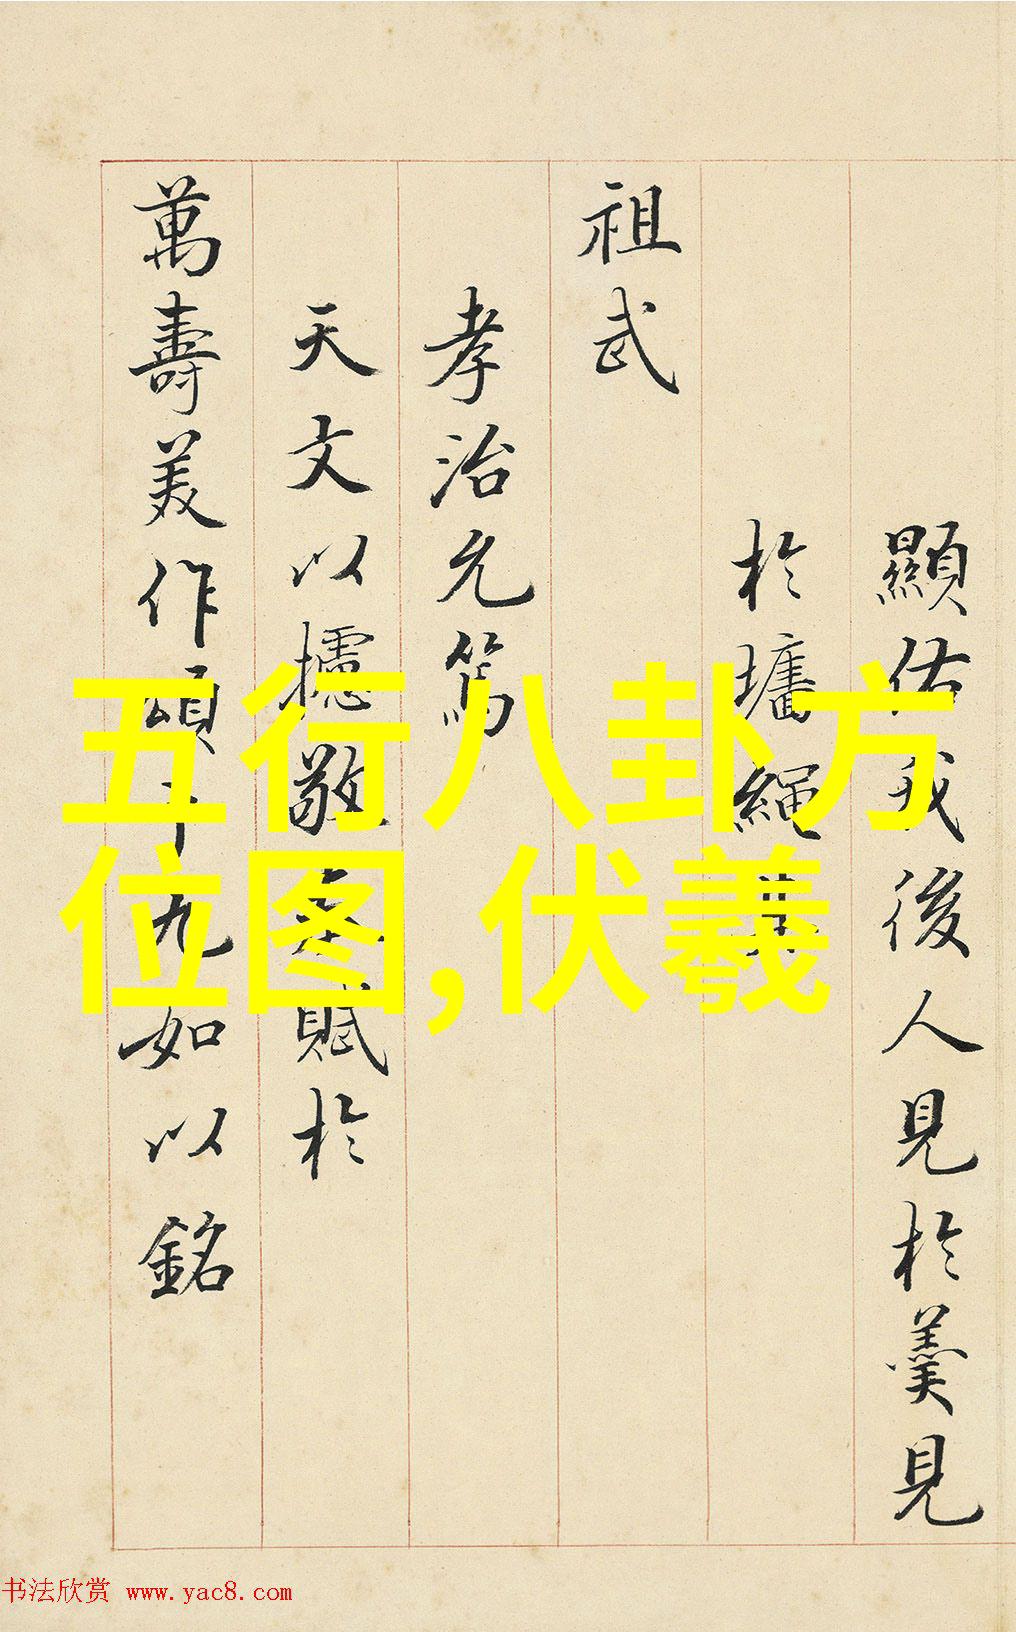 顯佑我後人見於羹見
於墻繩其
祖武
孝治允篤
天文以攄敬賦於
萬壽美作頌九如以銘
五行八卦方
位图,伏羲
书法欣赏 www.yac8.com